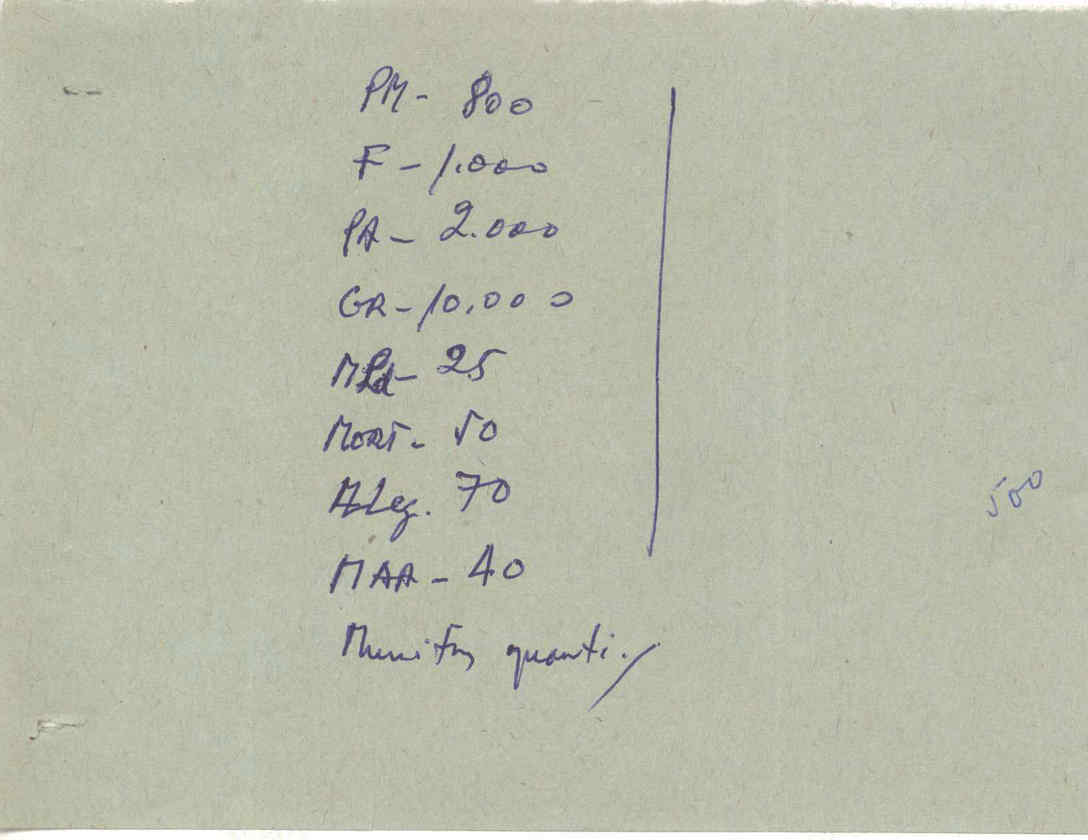 PM - 800
F - 1.000
PA - 2.000
GR - 10.000
MLd - 25
MORT - 50
MLeg. 70
MAA - 40
500
quanti.